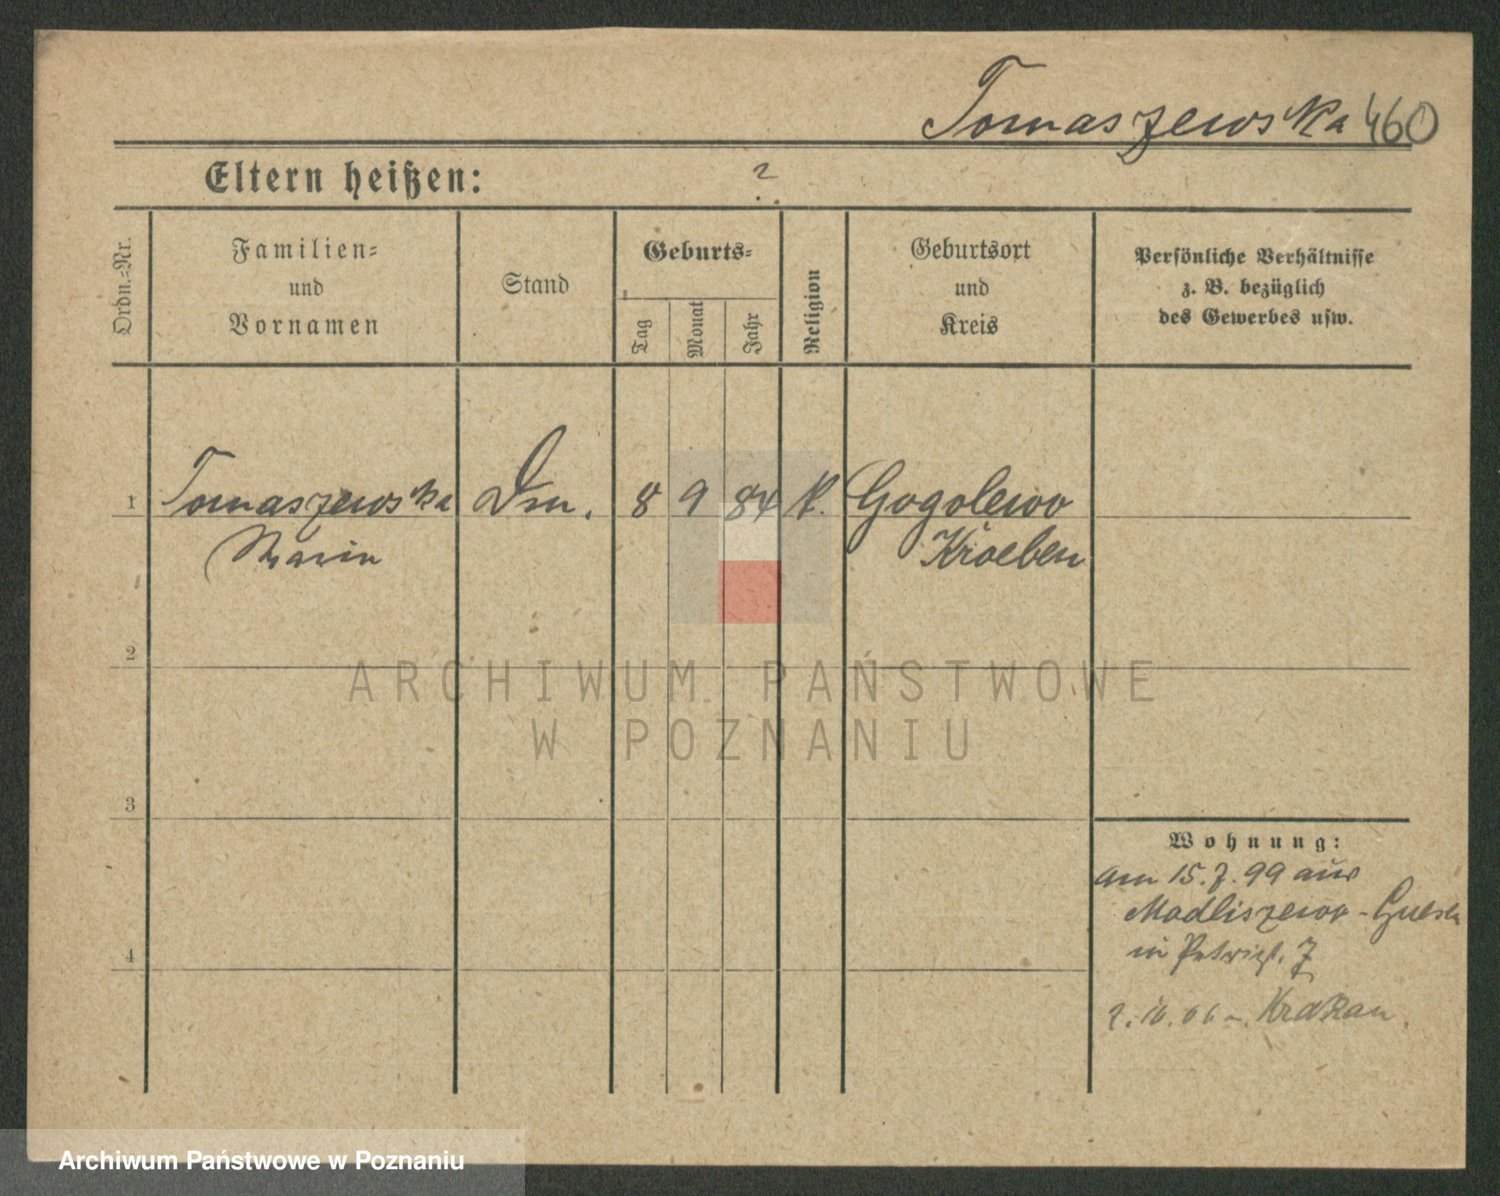 Tomaszewska 460
Eltern heißen: ?
Ordn.=Nr.
Familien=
und
Vornamen
Stand
Geburts=
Tag
Monat
Jahr
Religion
Geburtsort
und
Kreis
Persönliche Verhältnisse
z. B. bezüglich
des Gewerbes usw.
1 Tomaszewska Dm. 8 9 84 k. Gogolewo
Maria Kroeben
2
ARCHIWUM PAŃSTWOWE
W POZNANIU
3
Wohnung:
am 15.7.99 aus
Modliszewo - Gnesen
in Petripl. 7
06 n. Krakau.
4
Archiwum Państwowe w Poznaniu